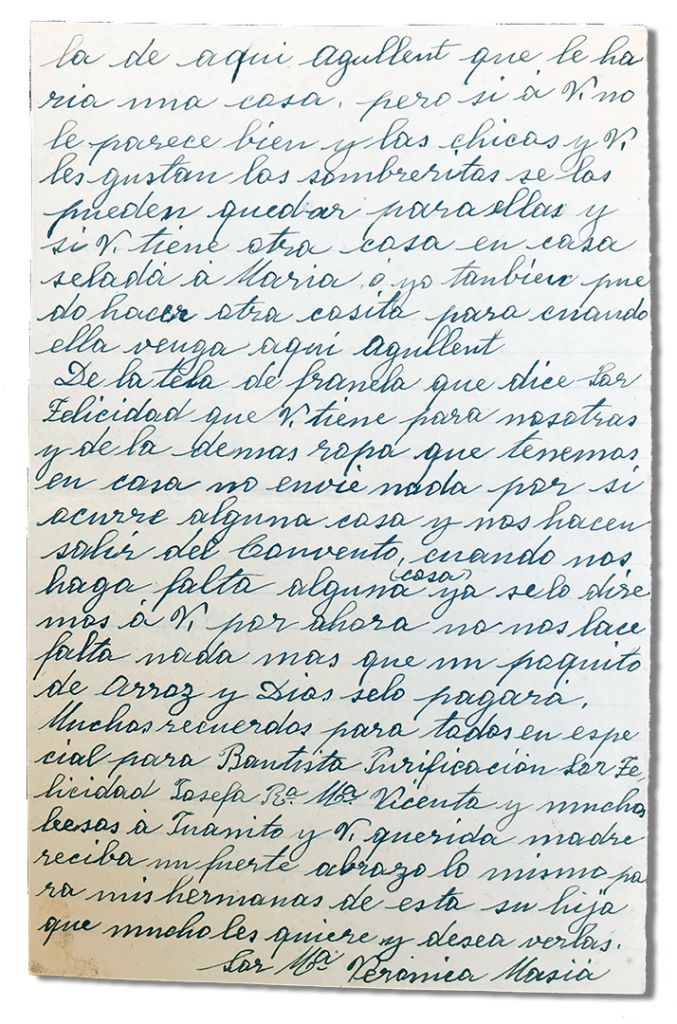 la de aqui Agullent que le ha
ria una cosa, pero si á V. no
le parece bien y las chicas y V.
les gustan los sombreritos se los
pueden quedar para ellas y
si V. tiene otra cosa en casa
seladá á Maria ó yo tanbien pue
do hacer otra cosita para cuando
ella venga aqui Agullent
De la tela de franela que dice Sor
Felicidad que V. tiene para nosotras
y de la demas ropa que tenemos
en casa no envie nada por si
ocurre alguna cosa y nos hacen
salir del Convento, cuando nos
haga falta alguna (cosa) ya selo dire
mos á V. por ahora no nos hace
falta nada mas que un poquito
de Arroz y Dios selo pagará.
Muchos recuerdos para todos en espe
cial para Bautista Purificación Sor Fe,
licidad Josefa Rª Mª Vicenta y muchos
besos á Juanito y V. querida madre
reciba un fuerte abrazo lo mismo pa
ra mis hermanas de esta su hija
que mucho les quiere y desea verlas.
Sor Mª Verónica Masiá